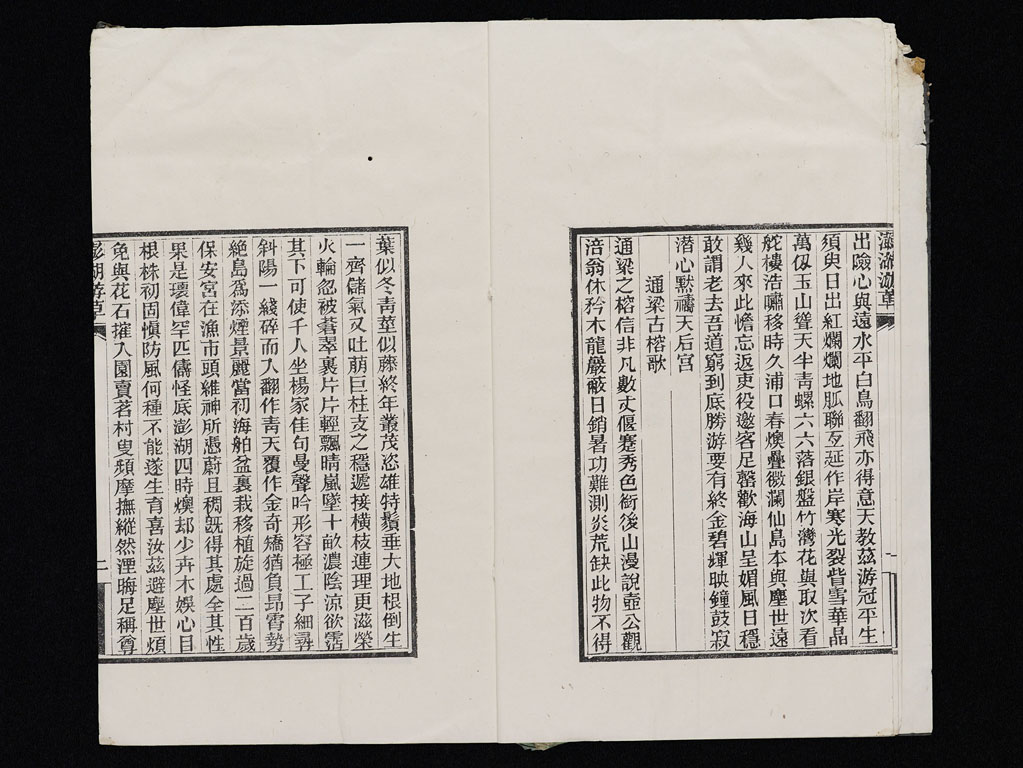 澎湖游草
出險心與遠水平白鳥翻飛亦得意天教茲游冠平生
須臾日出紅爛爛地脈聯亙延作岸寒光裂眥雪華晶
萬仭玉山聳天半青螺六六落銀盤竹灣花與取次看
舵樓浩嘯移時久浦口春燠疊微瀾仙島本與塵世遠
幾人來此憺忘返吏役邀客足罄歡海山呈媚風日穩
敢謂老去吾道窮到底勝游要有終金碧輝映鐘鼓寂
潜心黙禱天后宫
通梁古榕歌
通梁之榕信非凡數丈偃蹇秀色銜後山漫說壺公觀
涪翁休矜木龍巖蔽日銷暑功難測炎荒缺此物不得
一
葉似冬青莖似藤終年叢茂恣雄特鬚垂大地根倒生
一齊儲氣又吐萌巨柱支之穩遞接橫枝連理更滋榮
火輪忽被蒼翠裹片片輕飄晴嵐墜十畝濃陰涼欲霑
其下可使千人坐楊家佳句曼聲吟形容極工子細尋
斜陽一綫碎而入翻作青天覆作金奇矯猶負昂霄勢
絕島爲添煙景麗當初海舶盆裏栽移植旋過二百歲
保安宮在漁市頭維神所憑蔚且稠旣得其處全其性
果是瓌偉罕匹儔怪底澎湖四時燠却少卉木娛心目
根株初固愼防風何種不能遂生育喜汝茲避塵世煩
免與花石摧入園賣茗村叟頻摩撫縱然湮晦足稱尊
澎湖游草
二